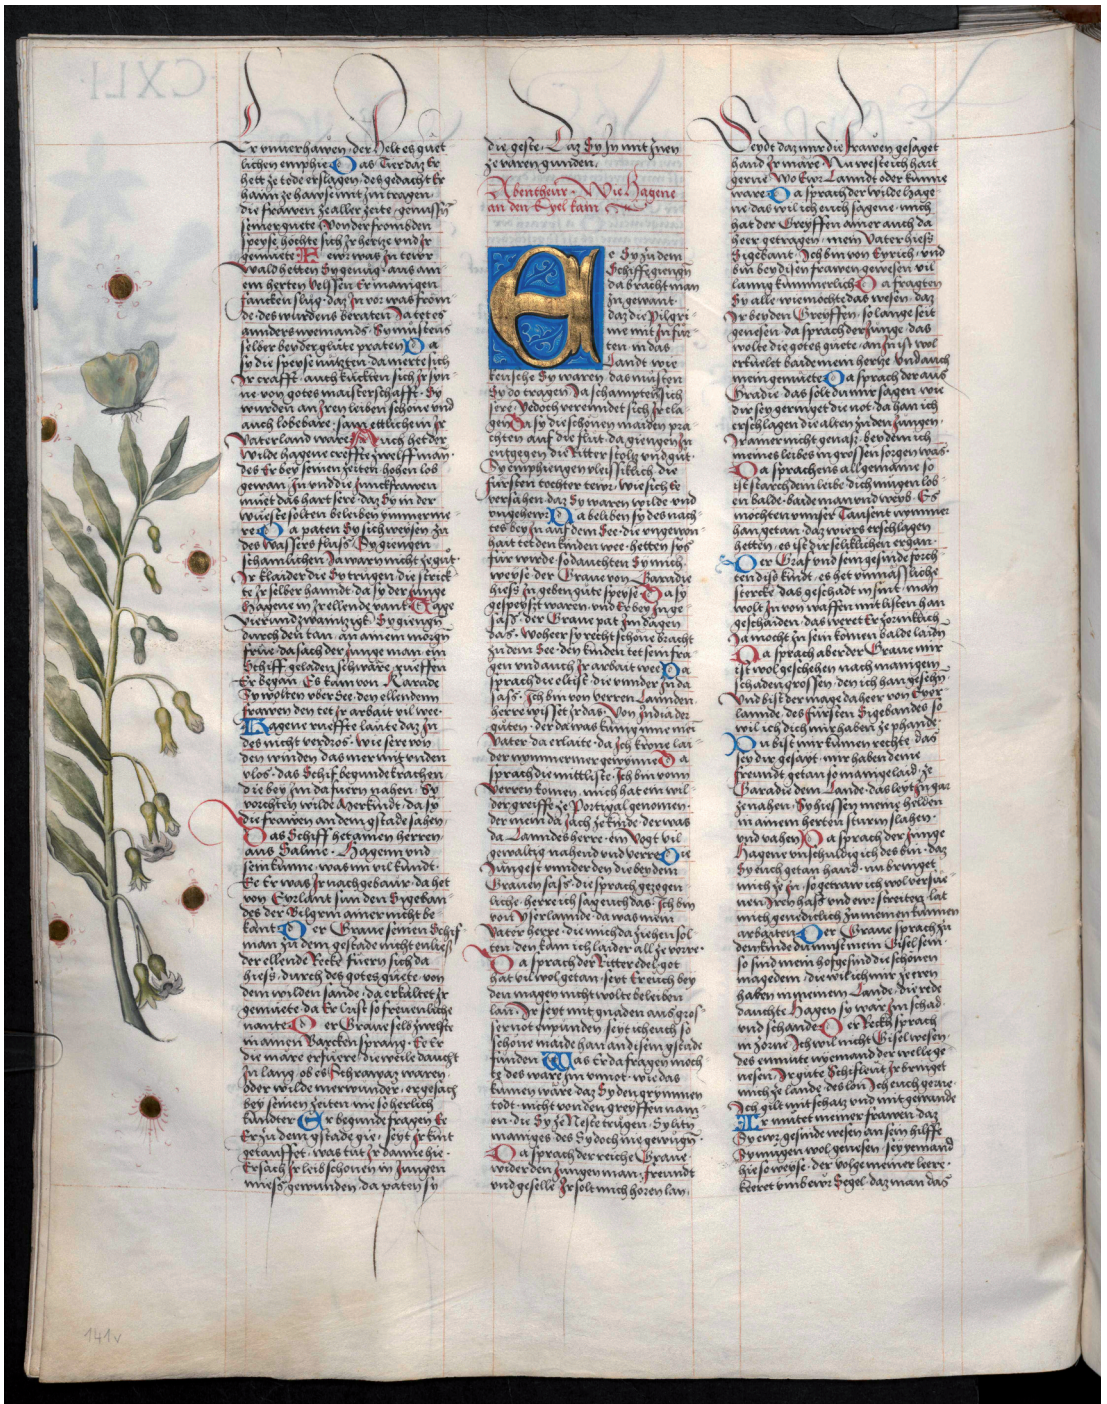 Er vnuerhawen · der Helt es güet
lichen emphie · Das Tier daz Er
hett ze tode erslagen · des gedacht Er
haim ze hawse mit im tragen
die frawen ze aller zeite · genussn
seiner güete · Von der frombden
speyse höchte sich Jr hertze vnd Jr
gemüete · Fewr was In tewr
Wald hetten Sy genüg · aus ain
em herten velssen Er manigen
fancken slüg · daz In vor was from
de · des wurden s beraten · Ja tet es
annders niemands · Sy muͤstens
selber bey der glüte praten · Da
sy die speyse nützten · da merte sich
Jr crafft · auch kückten sich Jr syn
ne · von gotes maisterschafft · Sy
wurden an Jren leiben schöne vnd
auch lobebäre · sam ettliche in Jr
Vaterland wäre · Auch het der
Wilde hagene creffte zwelff man ·
des Er bey seinen zeiten · hohen lob
gewan · In vnd die Junckfrawen
müet das hart sere · daz Sy in der
wüeste solten beleiben ymmerme
re · Da paten Sy sich weysen zu
des Wassers fluss · Sy giengen
schämlichen · Ja warn nicht ze güt
Jr klaider die Sy trügen · die strick
te Jr selber hanndt · da sy der Junge
Hagene in Jr ellende vant · Tage
vierundzwaintzigk · Sy giengn
durch den tan · an ainem morgn
frue · da sach der Junge man · ein
Schiff geladen schwäre · rueffen
Er began · Es kam von Karade
Sy wolten vber See · den ellenden
frawen den tet Jr arbait vil wee ·
Hagene rueffte laute · daz in
des nicht verdros · wie sere von
den winden das mer mit vnden
vlos · das Schif begunde krachen
die bey Im da fuern nahen · Sy
vorchten wilde Merkindt · da sy
die frawen an dem gstade sahen ·
Das Schiff het ainen herren
aus Salme · Hagenn vnd
sein künne · was im vil kundt ·
Ee Er was Jr nachgebaur · da het
von Eyrlant sun den Sygeban ·
des der Bilgrin ainer nicht be
kant · Der Graue seinen Schif
man zu dem gestade nicht enliess
der ellende Recke fuern sich da
hiess · durch des gotes guete · von
dem wilden sande · da erkaltet Jr
gemüete · da Er Crist so frewenliche
nante · Der Graue selb zwelfte
in ainen Barcken sprang · Ee Er
die märe erfuere · die weile daucht
In lang · ob es Schrawaz waren ·
oder wilde merwunder · er gesach
bey seinen zeiten nie so herlich
kundter · Er begunde fragen Ee
Er zu dem gstade gie · seyt Jr kint
getauffet · was tüt Jr danne hie ·
Er sach Jr leib schonen · in Jungen
miess gewunden · da paten sy
die geste · Daz Sy Sy mit Jnen
ze varen gunden ·
Abentheur · Wie Hagene
an den Schef kam
Ee Sy zu dem
Schiffe giengn
da bracht man
In gewant ·
daz die Pilgri
me mit Jn fuer
ten in das
Landt wie
keusche Sy waren · das müsten
Sy do tragen · Ja schampten sich
sere · Yedoch verenndet sich Jr cla ·
gen · Da sy die schönen maiden pra
chten auf die flüt · da giengen Jn
entgegen die Ritter stoltz vnd güt ·
Sy emphiengen vleissiklich · die
fürsten tochter tewr · wie sich te
versahen · daz Sy waren wilde vnd
vngehewr · Da beliben sy des nach
tes bey Jn auf dem See · die vngewon
hait tet den kinden wee · hetten sys
für wirde · so dauchten Sy mich
weyse · der Graue von Garadie
hiess Jn geben güte speyse · Da sy
gespeyset waren · vnd Er bey Jn ge
sass · der Graue pat Jm sagen
das · Wo heer sy recht schöne bracht
zu dem See · den kinden tet sein fra
gen vnd auch Jr arbait wee · Da
sprach die eltist · die vnnder Jn da
sass · Ich bin von verren Lannden
herre wisset Jr das · Von India der
güten · der da was künig mein
Vater · da er laite · da Ich krone lai
der nymmermer gewynne · Da
sprach die mittliste · Ich bin vonn
verren komen · mich hat ein wil
der greiffe ze Portigal genomen ·
der mein da Jach ze kinde · der was
da Lanndes herre · ein Vogt vil
gewaltig nahend vnd verre · Die
Jüngest vnnder den die bey dem
Grauen sass · die sprach gezogen
liche · herre ich sag euch das · Ich bin
von Yserlannde · da was mein
Vater herre · die mich da ziehen sol
ten · den kam ich laider all ze verre ·
Da sprach der Ritter edel · got
hat vil wol getan · seyt Er euch bey
den magen nicht wolte beleiben
lan · Jr seyt mit gnaden aus gros ·
ser not enpunden · seyt ich euch so
schöne maide han an disem gstade
funden · Was Er da fragen moch
te · des ware Jm vnnot · wie das
kumen wäre · daz Sy den grymmen
todt · nicht von den greyffen nam ·
en · die Sy ze Neste trügen · Sy liten
maniges · des Sy doch nie gewügn ·
Da sprach der reiche Graue ·
wider den Jungen man · freundt
vnd geselle Jr solt mich horen lan ·
Seydt daz mir die Frawen gesaget
hand Jr märe · Nu wess te ich hart
gerne · Wo Ewr Lanndt oder künne
ware · Da sprach der wilde hage
ne · das wil ich euch sagene · mich
hat der Greyffen ainer auch da
heer getragen · mein Vater hiess
Sigebant · Ich bin von Eyrich · vnd
bin bey disen frawen gewesen vil
lanng kummerlich · Da fragten
Sy alle · wie mochte das wesen · daz
Jr bey den Greyffen · so lange seit
genesen · da sprach der Junge · das
wolte die gotes guete · an In ist wol
erkuelet baide mein hertze vnd auch
mein gemüete · Da sprach der aus
Gradie · das solt du mir sagen · wie
dir sey geringet die not · da han ich
erschlagen die alten zu den Jungen ·
Jr ainer nicht genass · bey dem ich
meines leibes in grossen sorgen was ·
Da sprachens all gemaine · so
ist starch dein leibe · dich mügen lob ·
en balde · baide man vnd weyb · Es
möchten vnnser Tausent nymmer
han getan · daz wiers erschlagen
hetten · es ist dir seliklichen ergan ·
Der Graf vnd sein gesinde forch
ten diss kindt · es het vnmässliche
stercke · das geschadt in sint · man
wolt In von waffen mit listen han
geschaiden · das weret Er zorniklich
Ja mocht In sein komen balde laidn
Da sprach aber der Graue mir
ist wol geschehen nach manigem
schaden grossen · den ich han gesehn
Vnd bist der mage daheer von Eyer
lannde · des Fürsten Sigebandes so
wil ich dich mir haben ze phande ·
Du bist mir kumen rechte · das
sey dir gesagt · mir haben deine
freundt getan so manig laid · ze
Garadie dem Lande · das leyt In gar
ze nahen · Sy hiessen meine helden
in ainem herten sturm slahen ·
vnd vahen · Da sprach der Junge
Hagene vnschuldig ich des bin · daz
Sy euch getan hand · nu bringet
mich ze In · so getraw ich wol versue
nen Jren hass vnd ewr streiten · lat
mich genediclich zu meinen kunnen
arbaiten · Der Graue sprach zu
dem kinde · du muest mein Gisel sein ·
so sind mein hofgesind die schönen
magedein · die wil ich mir ze eren
haben in meinem Lande · die rede
dauchte Hagen · sy wär Jm schad ·
vnd schande · Der Recke sprach
in zorne · Ich wil nicht Gisel wesen ·
des enmute nyemand · der welle ge
nesen · Jr güte Schifleut Jr bringet
mich ze lande · des lon Ich euch gerne ·
Ich gilt mit schatz vnd mit gewande
Er mutet meiner frawen daz
Sy ewr gesinde wesen · an sein hilffe
Sy mügen wol genesen · sey yemand
hie so weyse · der volge meiner leere ·
keeret vmb ewr Segel · daz man das
141v